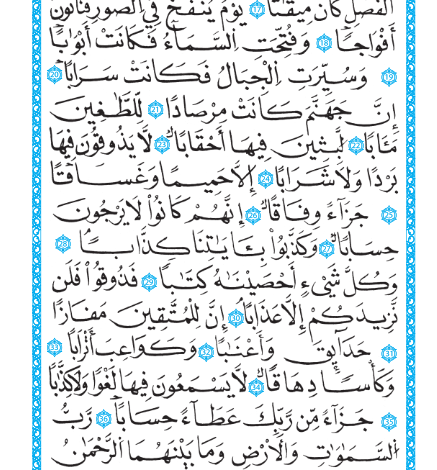 ٱلۡفَصۡلِ كَانَ مِيقَٰتٗا ١٧ يَوۡمَ يُنفَخُ فِي ٱلصُّورِ فَتَأۡتُونَ
أَفۡوَاجٗا ١٨ وَفُتِحَتِ ٱلسَّمَآءُ فَكَانَتۡ أَبۡوَٰبٗا
١٩ وَسُيِّرَتِ ٱلۡجِبَالُ فَكَانَتۡ سَرَابًا ٢٠
إِنَّ جَهَنَّمَ كَانَتۡ مِرۡصَادٗا ٢١ لِّلطَّٰغِينَ
مَـَٔابٗا ٢٢ لَّٰبِثِينَ فِيهَآ أَحۡقَابٗا ٢٣ لَّا يَذُوقُونَ فِيهَا
بَرۡدٗا وَلَا شَرَابًا ٢٤ إِلَّا حَمِيمٗا وَغَسَّاقٗا
٢٥ جَزَآءٗ وِفَاقًا ٢٦ إِنَّهُمۡ كَانُواْ لَا يَرۡجُونَ
حِسَابٗا ٢٧ وَكَذَّبُواْ بِـَٔايَٰتِنَا كِذَّابٗا ٢٨
وَكُلَّ شَيۡءٍ أَحۡصَيۡنَٰهُ كِتَٰبٗا ٢٩ فَذُوقُواْ فَلَن
نَّزِيدَكُمۡ إِلَّا عَذَابًا ٣٠ إِنَّ لِلۡمُتَّقِينَ مَفَازًا
٣١ حَدَآئِقَ وَأَعۡنَٰبٗا ٣٢ وَكَوَاعِبَ أَتۡرَابٗا ٣٣
وَكَأۡسٗا دِهَاقٗا ٣٤ لَّا يَسۡمَعُونَ فِيهَا لَغۡوٗا وَلَا كِذَّٰبٗا
٣٥ جَزَآءٗ مِّن رَّبِّكَ عَطَآءً حِسَابٗا ٣٦ رَّبِّ
ٱلسَّمَٰوَٰتِ وَٱلۡأَرۡضِ وَمَا بَيۡنَهُمَا ٱلرَّحۡمَٰنِ